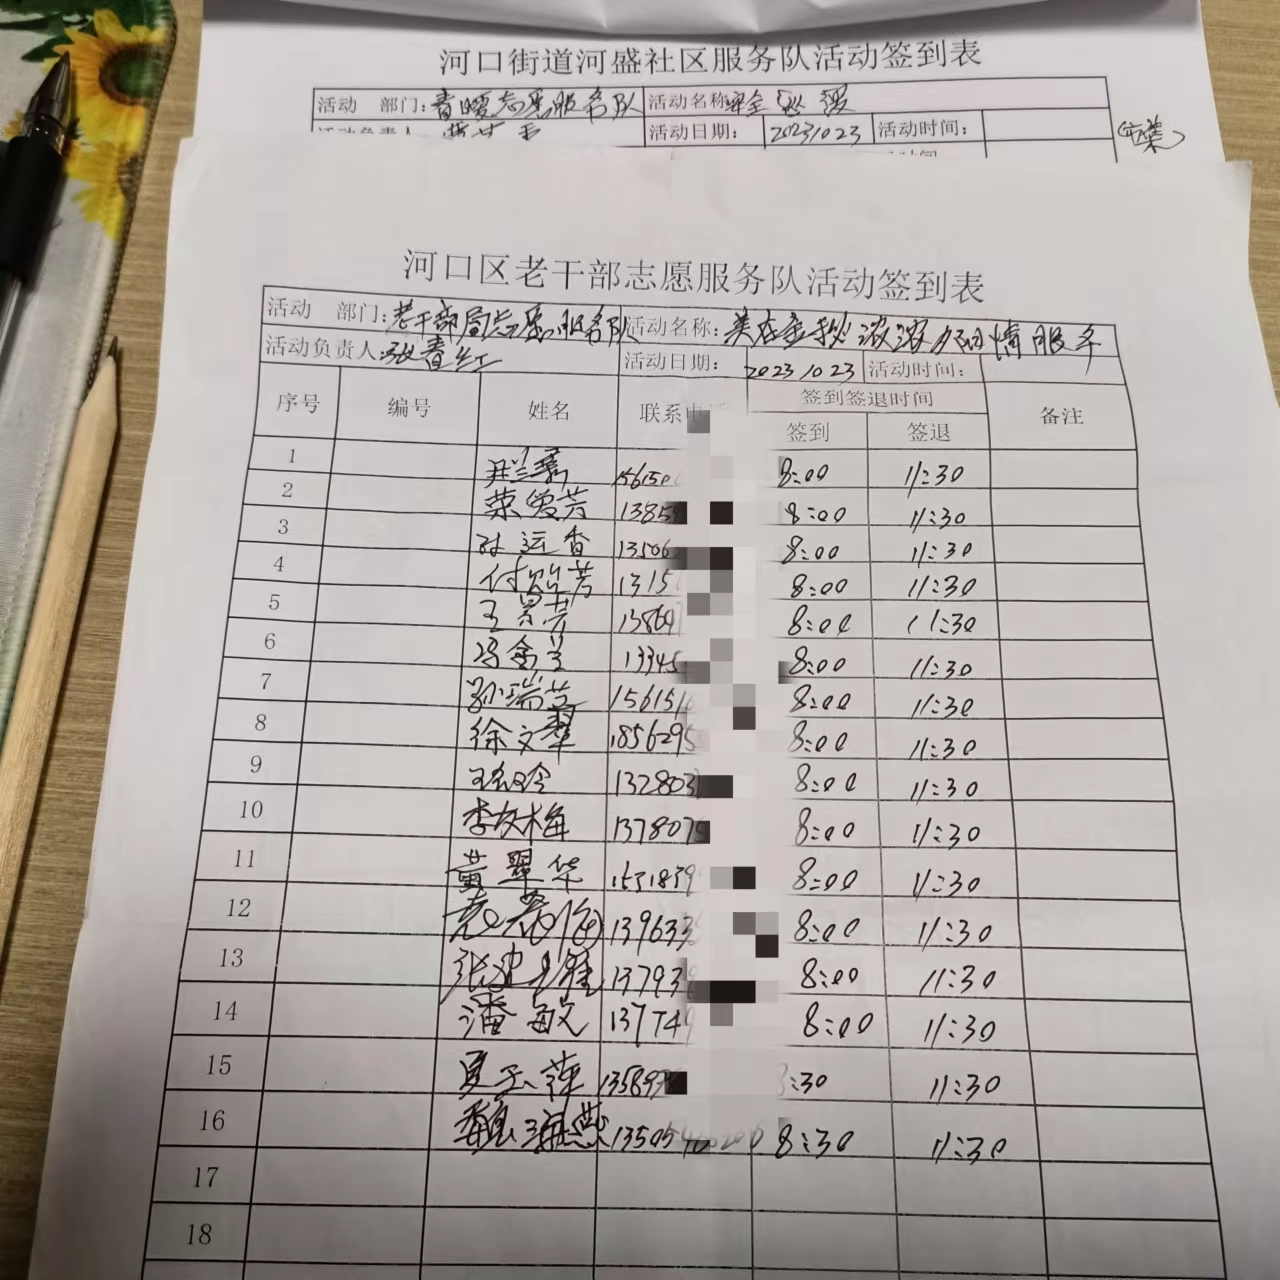 河口街道河盛社区服务队活动签到表
活动 部门: 青暖志愿服务队 活动名称
活动负责人 活动日期: 20231023 活动时间:
河口区老干部志愿服务队活动签到表
活动 部门: 老干部局志愿服务队 活动名称: 美在金秋 浓浓夕阳情服务
活动负责人: 张春红 活动日期: 20231023 活动时间:
序号 编号 姓名 联系电 签到签退时间 备注
签到 签退
1 15615 8:00 11:30
2 荣爱芳 1385 8:00 11:30
3 孙运香 13506 8:00 11:30
4 付 芳 1315 8:00 11:30
5 王 芳 1386 8:00 11:30
6 冯金兰 13345 8:00 11:30
7 孙瑞兰 156151 8:00 11:30
8 徐文翠 1856295 8:00 11:30
9 132803 8:00 11:30
10 李友梅 137807 8:00 11:30
11 黄翠华 1531839 8:00 11:30
12 139633 8:00 11:30
13 张建 13793 8:00 11:30
14 潘敏 13774 8:00 11:30
15 夏玉萍 13589 8:30 11:30
16 魏海燕 13505 8:30 11:30
17
18